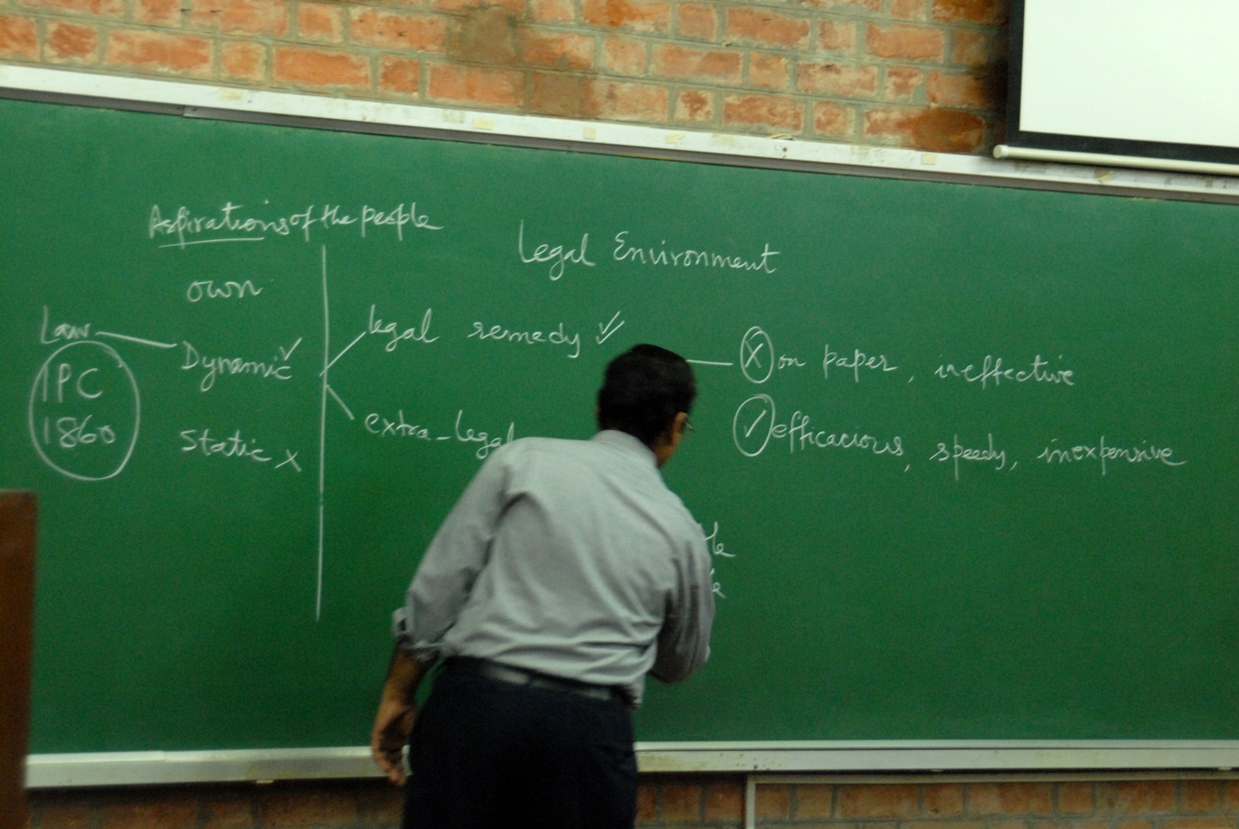 Aspirations of the people
Legal Environment
own
Law
Dynamic ✓
IPC
1860
Static x
legal remedy ✓
extra-legal
x on paper, ineffective
✓ efficacious, speedy, inexpensive